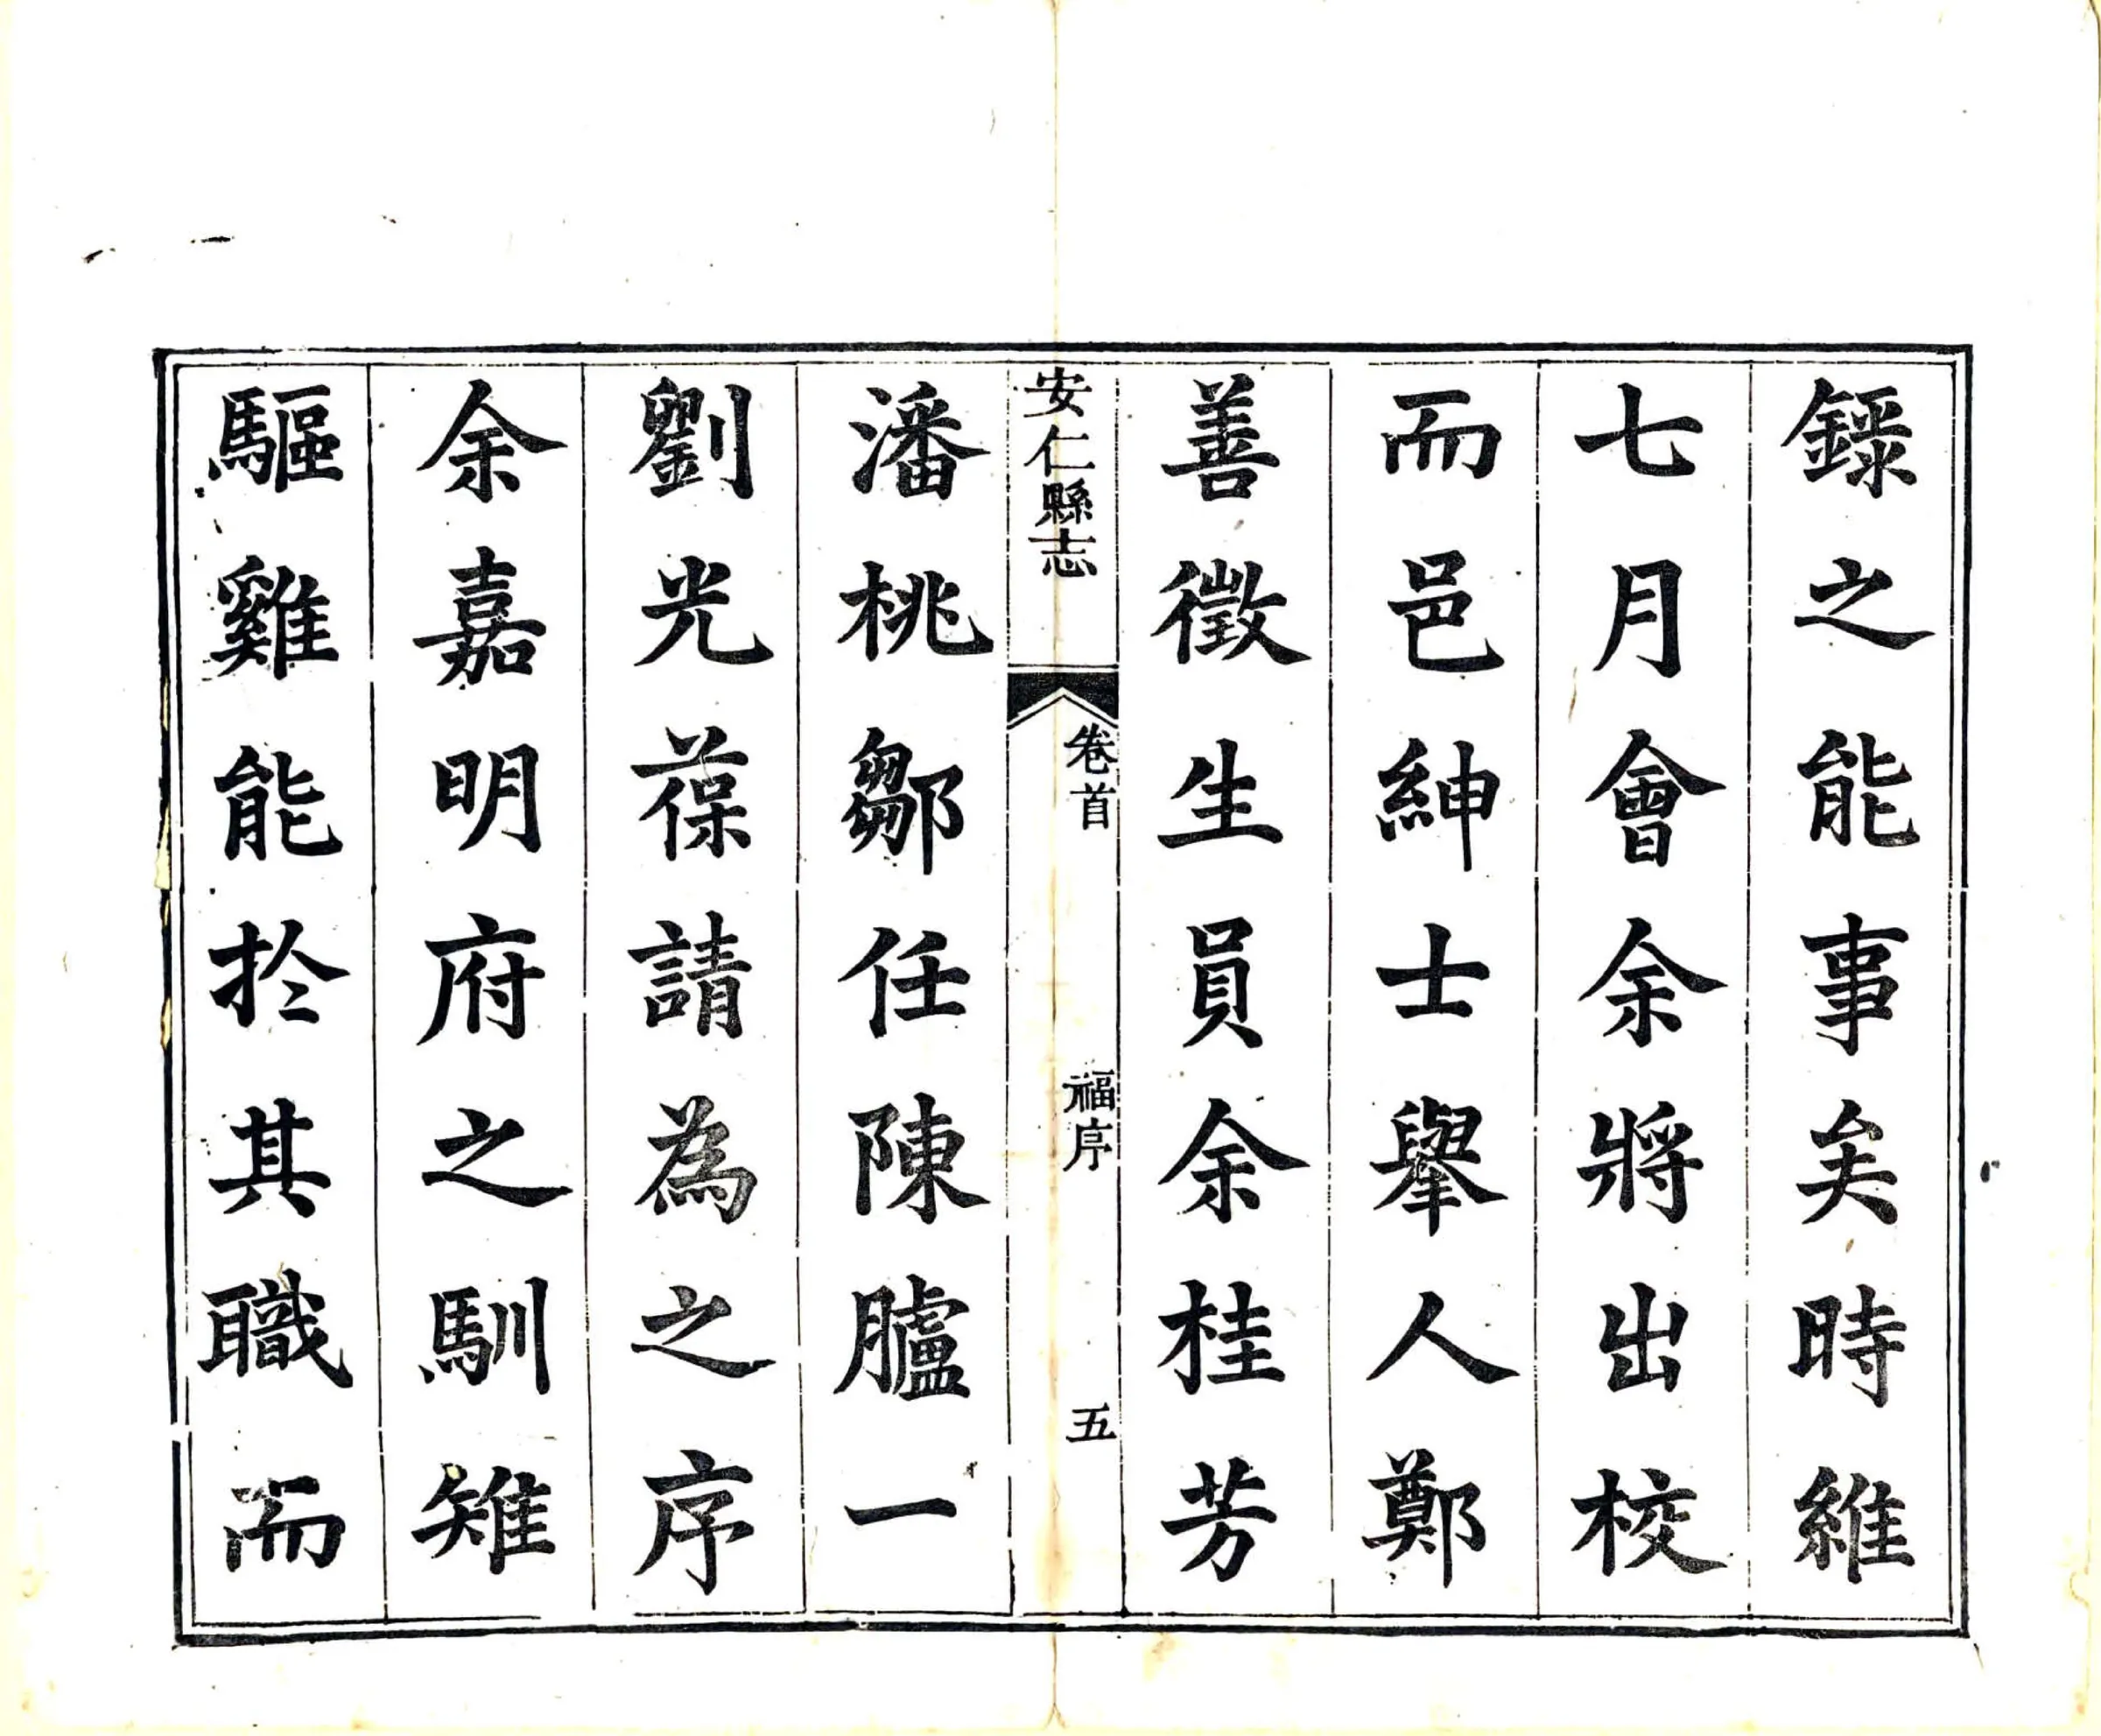 錄之能事矣時維
七月會余將出校
而邑紳士舉人鄭
善徵生員余桂芳
安仁縣志
卷首
福序
五
潘桃鄒任陳臚一
劉光葆請為之序
余嘉明府之馴雉
驅雞能於其職而